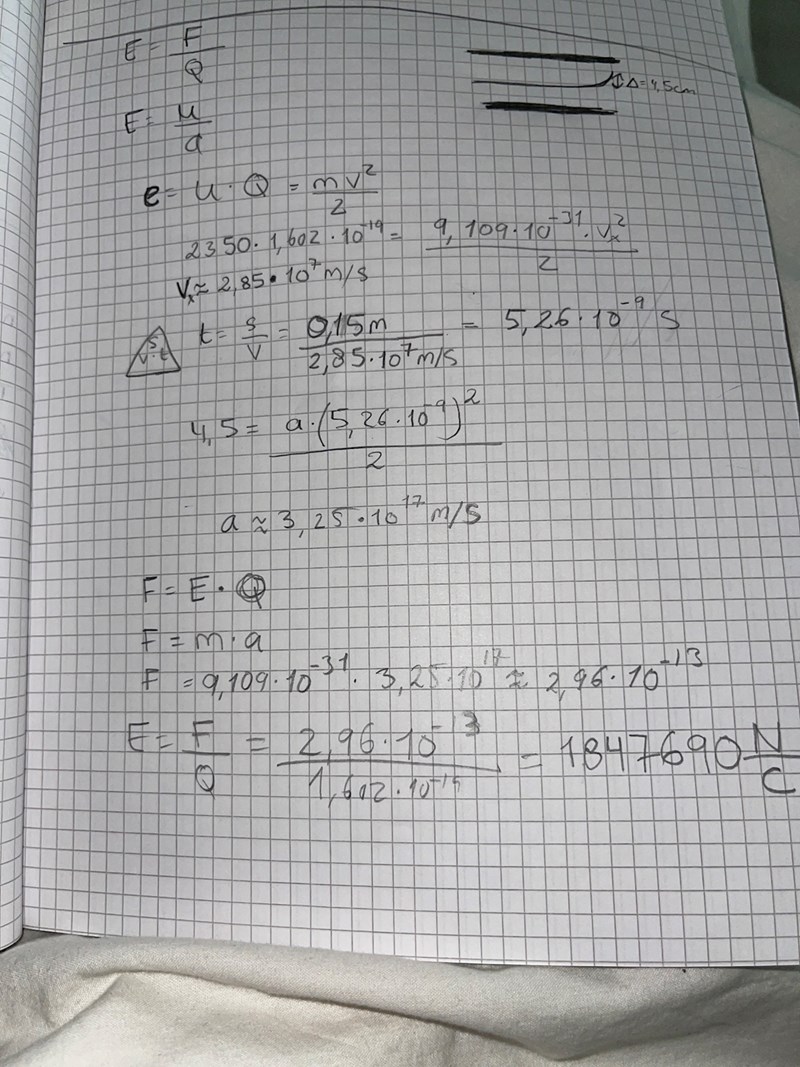 E = F/Q
Δ=4,5cm
E = U/d
e = U · Q = mv²/2
2350 · 1,602 · 10⁻¹⁹ = 9,109 · 10⁻³¹ · Vₓ²/2
Vₓ ≈ 2,85 · 10⁷ m/s
s v · t t = s/v = 0,15m/2,85 · 10⁷ m/s = 5,26 · 10⁻⁹ s
4,5 = a · (5,26 · 10⁻⁹)²/2
a ≈ 3,25 · 10¹⁷ m/s
F = E · Q
F = m · a
F = 9,109 · 10⁻³¹ · 3,25 · 10¹⁷ ≈ 2,96 · 10⁻¹³
E = F/Q = 2,96 · 10⁻¹³/1,602 · 10⁻¹⁹ = 1847690 N/C